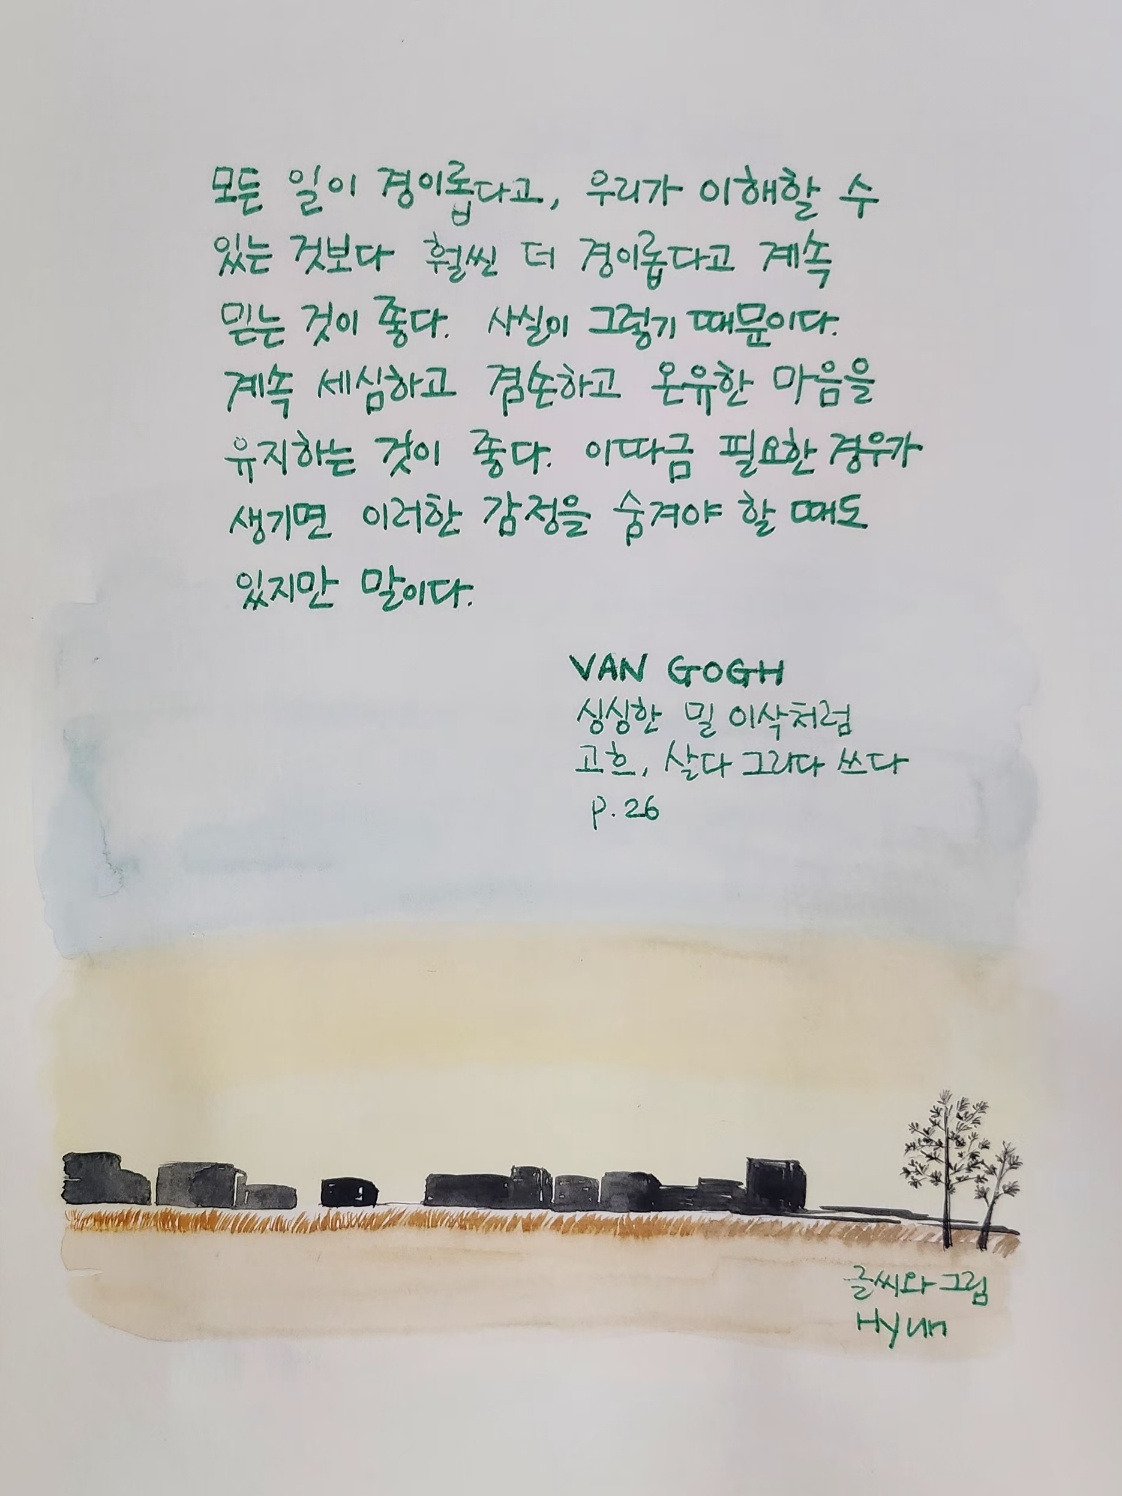 모든 일이 경이롭다고, 우리가 이해할 수
있는 것보다 훨씬 더 경이롭다고 계속
믿는 것이 좋다. 사실이 그렇기 때문이다.
계속 세심하고 겸손하고 온유한 마음을
유지하는 것이 좋다. 이따금 필요한 경우가
생기면 이러한 감정을 숨겨야 할 때도
있지만 말이다.
VAN GOGH
싱싱한 밀 이삭처럼
고흐, 살다 그리다 쓰다
P. 26
글씨와 그림
Hyun